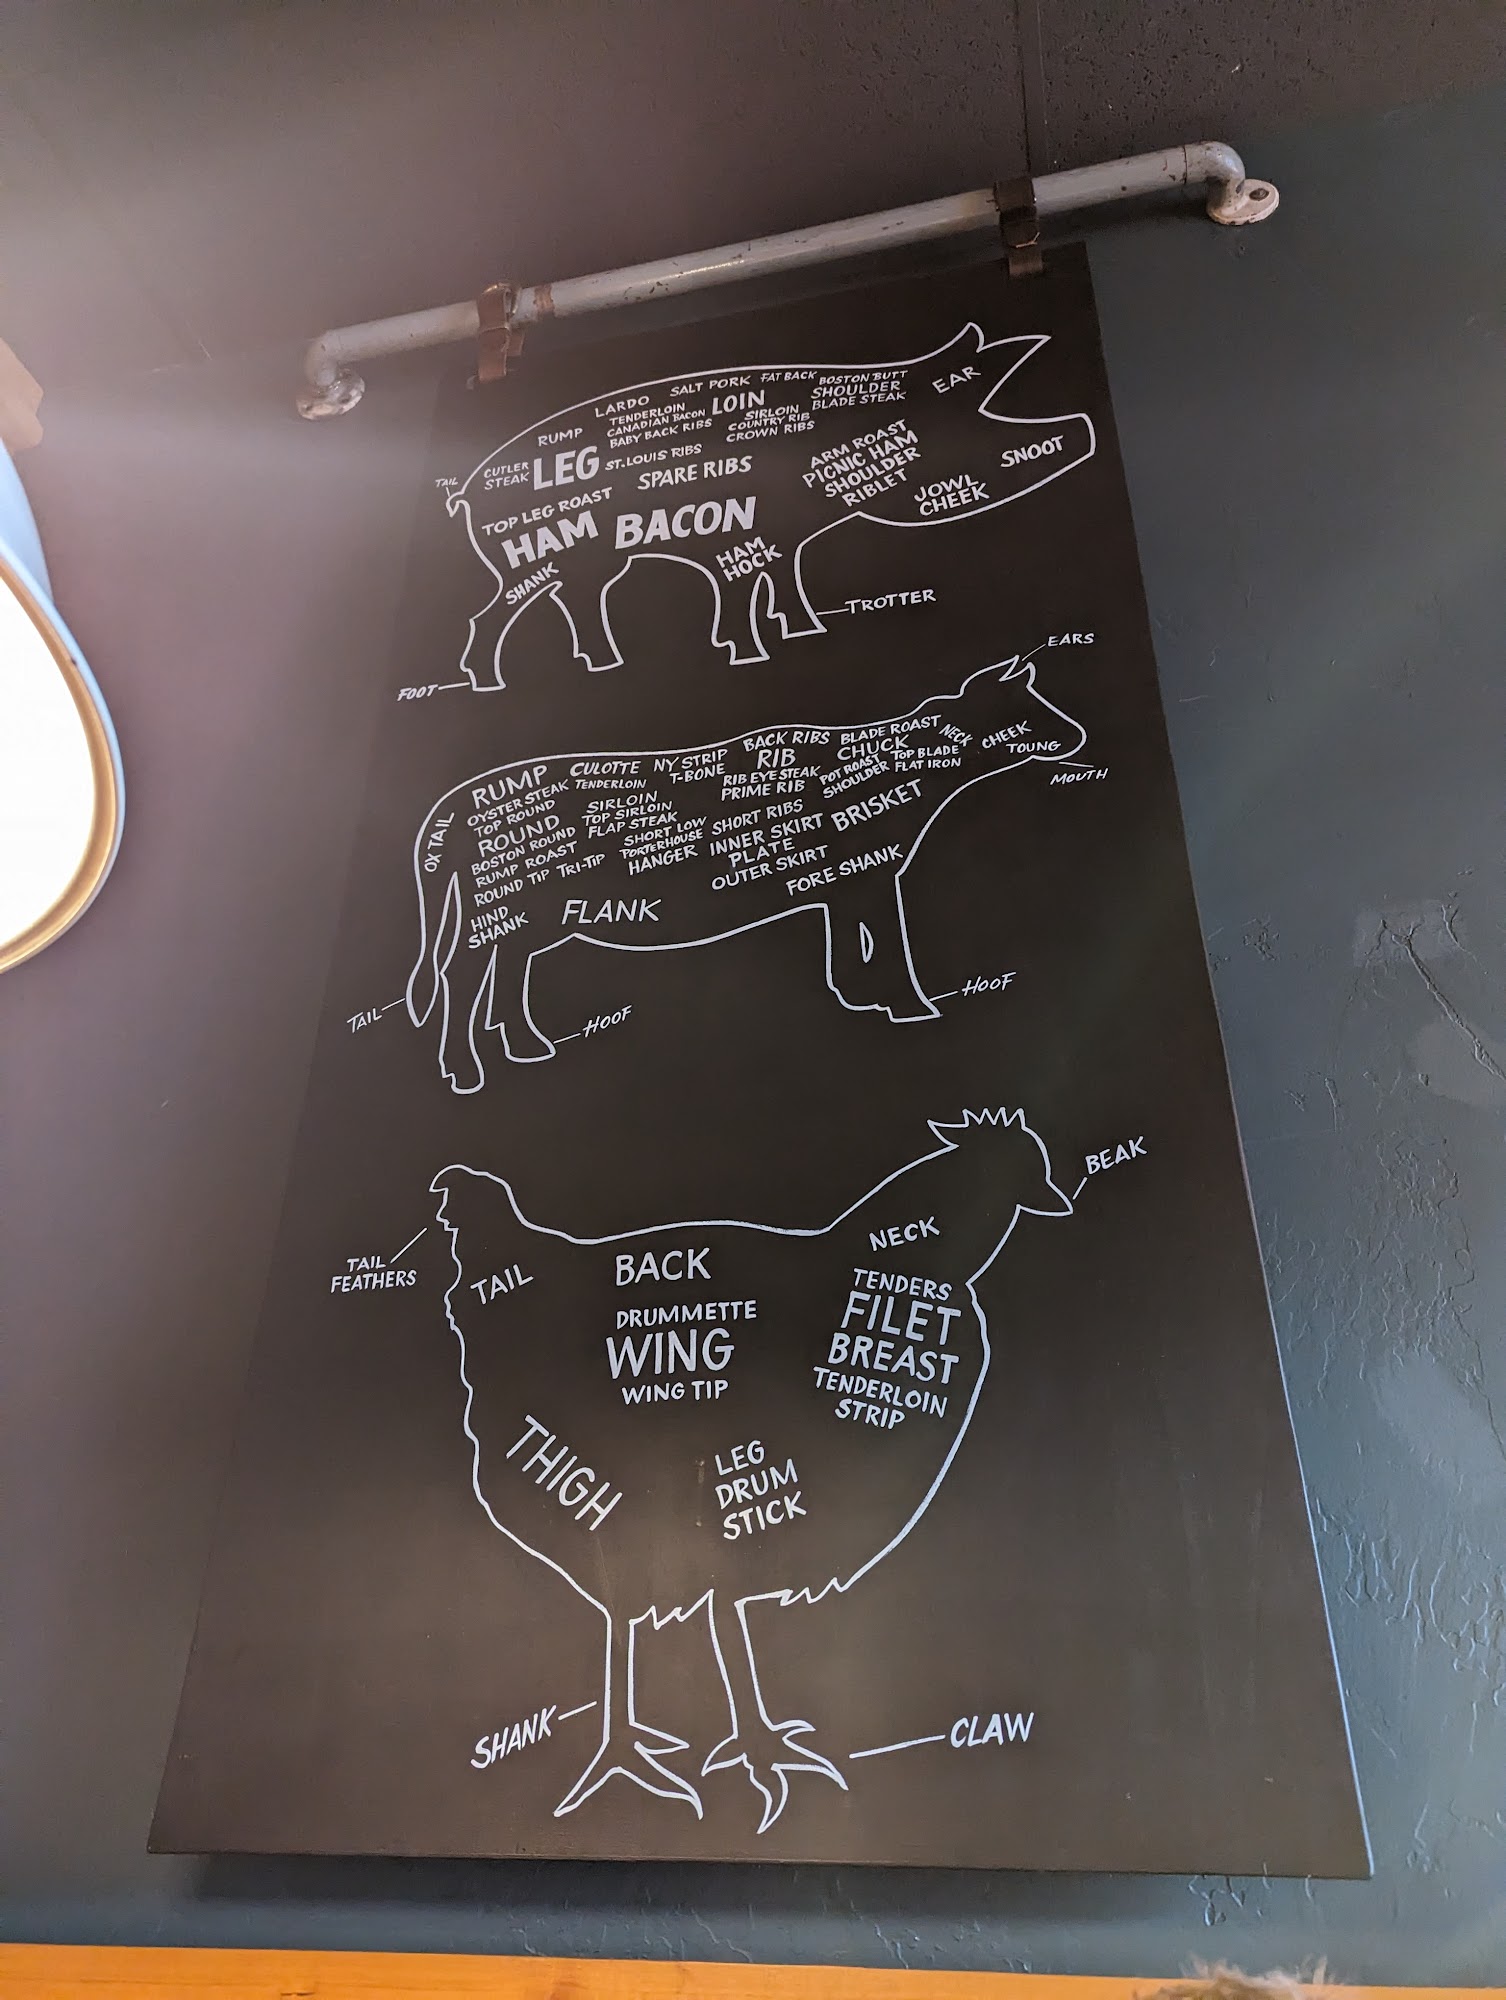 SALT PORK
FAT BACK
BOSTON BUTT
SHOULDER
BLADE STEAK
EAR
LARDO
TENDERLOIN
CANADIAN BACON
BABY BACK RIBS
LOIN
SIRLOIN
COUNTRY RIB
CROWN RIBS
RUMP
CUTLER
STEAK
LEG
ST. LOUIS RIBS
SPARE RIBS
ARM ROAST
PICNIC HAM
SHOULDER
RIBLET
SNOOT
JOWL
CHEEK
TAIL
TOP LEG ROAST
HAM
BACON
HAM
HOCK
SHANK
TROTTER
FOOT
EARS
BACK RIBS
BLADE ROAST
NECK
CHEEK
TOUNG
MOUTH
RUMP
CULOTTE
TENDERLOIN
NY STRIP
T-BONE
RIB
RIB EYE STEAK
PRIME RIB
CHUCK
POT ROAST
SHOULDER
TOP BLADE
FLAT IRON
OYSTER STEAK
TOP ROUND
ROUND
BOSTON ROUND
RUMP ROAST
ROUND TIP
TRI-TIP
SIRLOIN
TOP SIRLOIN
FLAP STEAK
SHORT LOW
PORTERHOUSE
HANGER
SHORT RIBS
INNER SKIRT
PLATE
OUTER SKIRT
BRISKET
FORE SHANK
OX TAIL
HIND
SHANK
FLANK
TAIL
HOOF
HOOF
BEAK
TAIL
FEATHERS
TAIL
BACK
NECK
DRUMMETTE
WING
WING TIP
TENDERS
FILET
BREAST
TENDERLOIN
STRIP
THIGH
LEG
DRUM
STICK
SHANK
CLAW